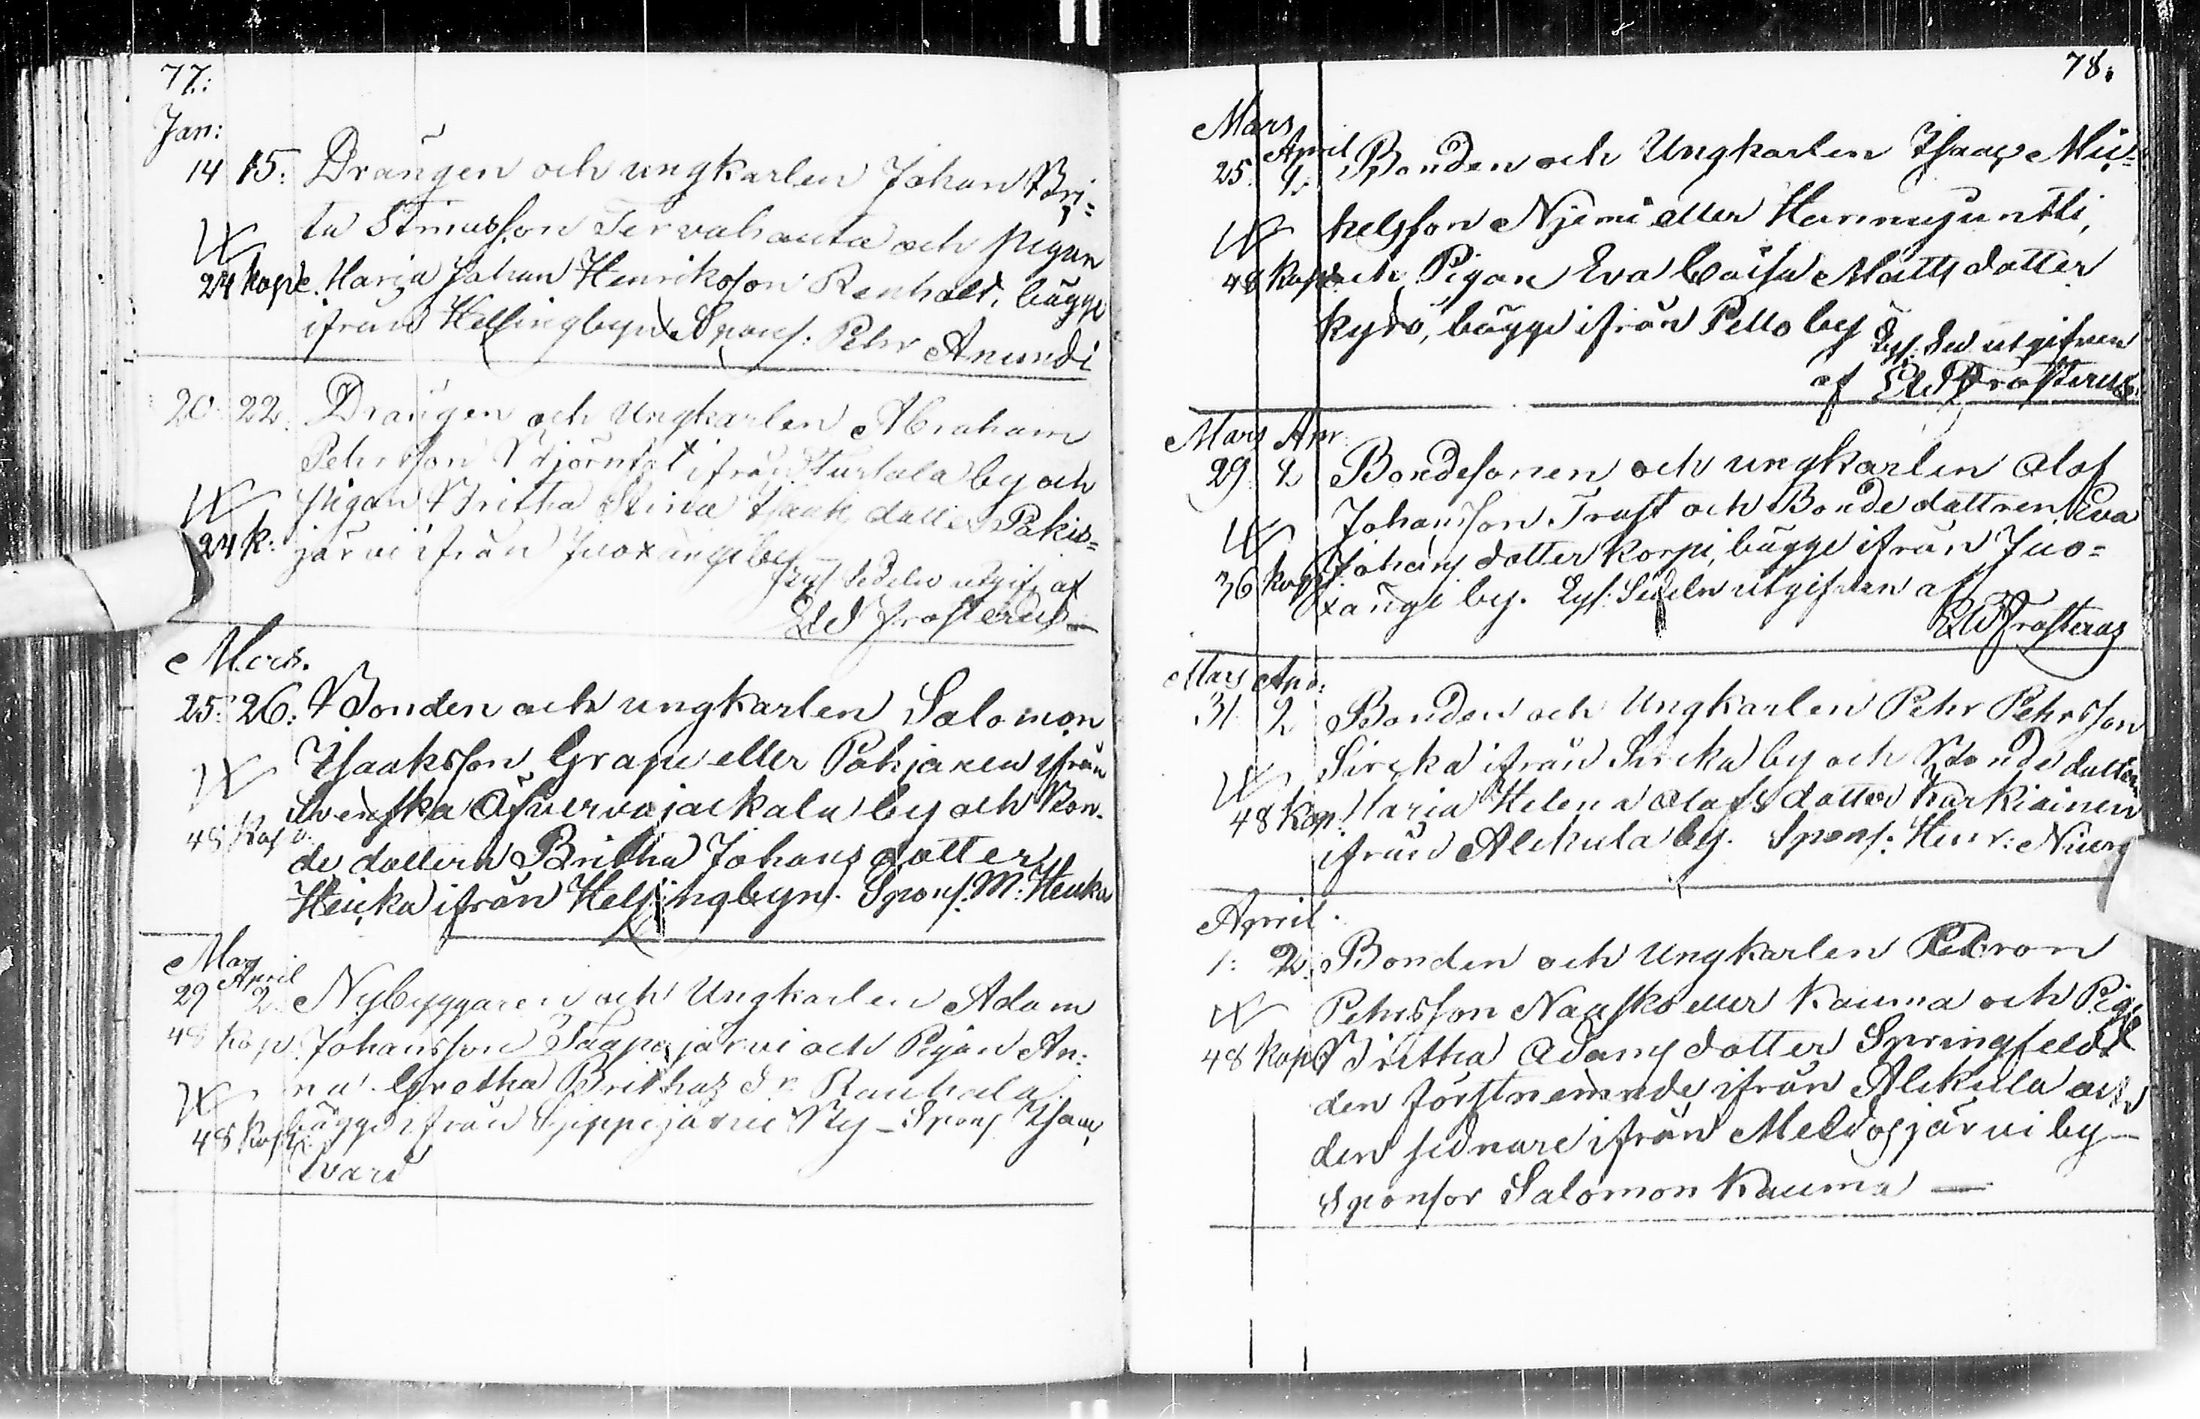 77:
Jan:
14 15: Drängen och ungkarlen Johan Bri-
ta Stinasson Tervahauta och pigan
24 kop: Maria Johan Henriksson Renhold, bägge
ifrån Helsingbyn Spons: Pehr Anundi
20 22. Drängen och Ungkarlen Abraham
Pehrsson Stjörnfot ifrån Turtola by och
pigan Britha Stina Isaaks dotter Pakis=
24 k: järvi ifrån Juoxängi by
Lys: Sedeln utgif: af
Frosterus
Mars.
25: 26: Bonden och ungkarlen Salomon
Isaaksson Grape eller Pohjanen ifrån
Svenska Öfvervojackala by och Bon-
48 Kop:
de dottern Britha Johans dotter
Heicka ifrån Helsingbyn. Spons: M: Heicka
Mars April
29 2 Nybyggaren och Ungkarlen Adam
48 Kop Johansson Taapajärvi och Pigan An-
na Gretha Brithas dr Rauhala
48 Kop: bägge ifrån Sjeppijärvi By - Spons Isaac
Vari
78.
Mars April
25. Bonden och Ungkarlen Isaac Mic-
kelsson Njemi eller Hannujuntti,
48 Kop: och Pigan Eva Caisa Matts dotter
Kyrö, bägge ifrån Pello by Lys: Sed utgifven
af Frosterus
Mars Apr
29. 2 Bondesonen och ungkarlen Olof
Johansson Trast och Bonde dottren Eva
36 kop: Johans dotter Korpi, bägge ifrån Juo=
xängi by. Lys: Sedeln utgifven af
Frosterus
Mars Apr:
31 2 Bonden och Ungkarlen Pehr Pehrsson
Sircka ifrån Sircka by och Bonde dottren
48 Kop: Maria Helena Olofs dotter Kurkiainen
ifrån Alckula by. Spons: Henr:
April
1: 2: Bonden och Ungkarlen Petron
Pehrsson Naasko eller Kauma och Pig
48 kop: Britha Adams dotter Springfeldt
den förstnemnde ifrån Alckula och
den sednare ifrån Meldosjärvi by
Sponsor Salomon Kauma —